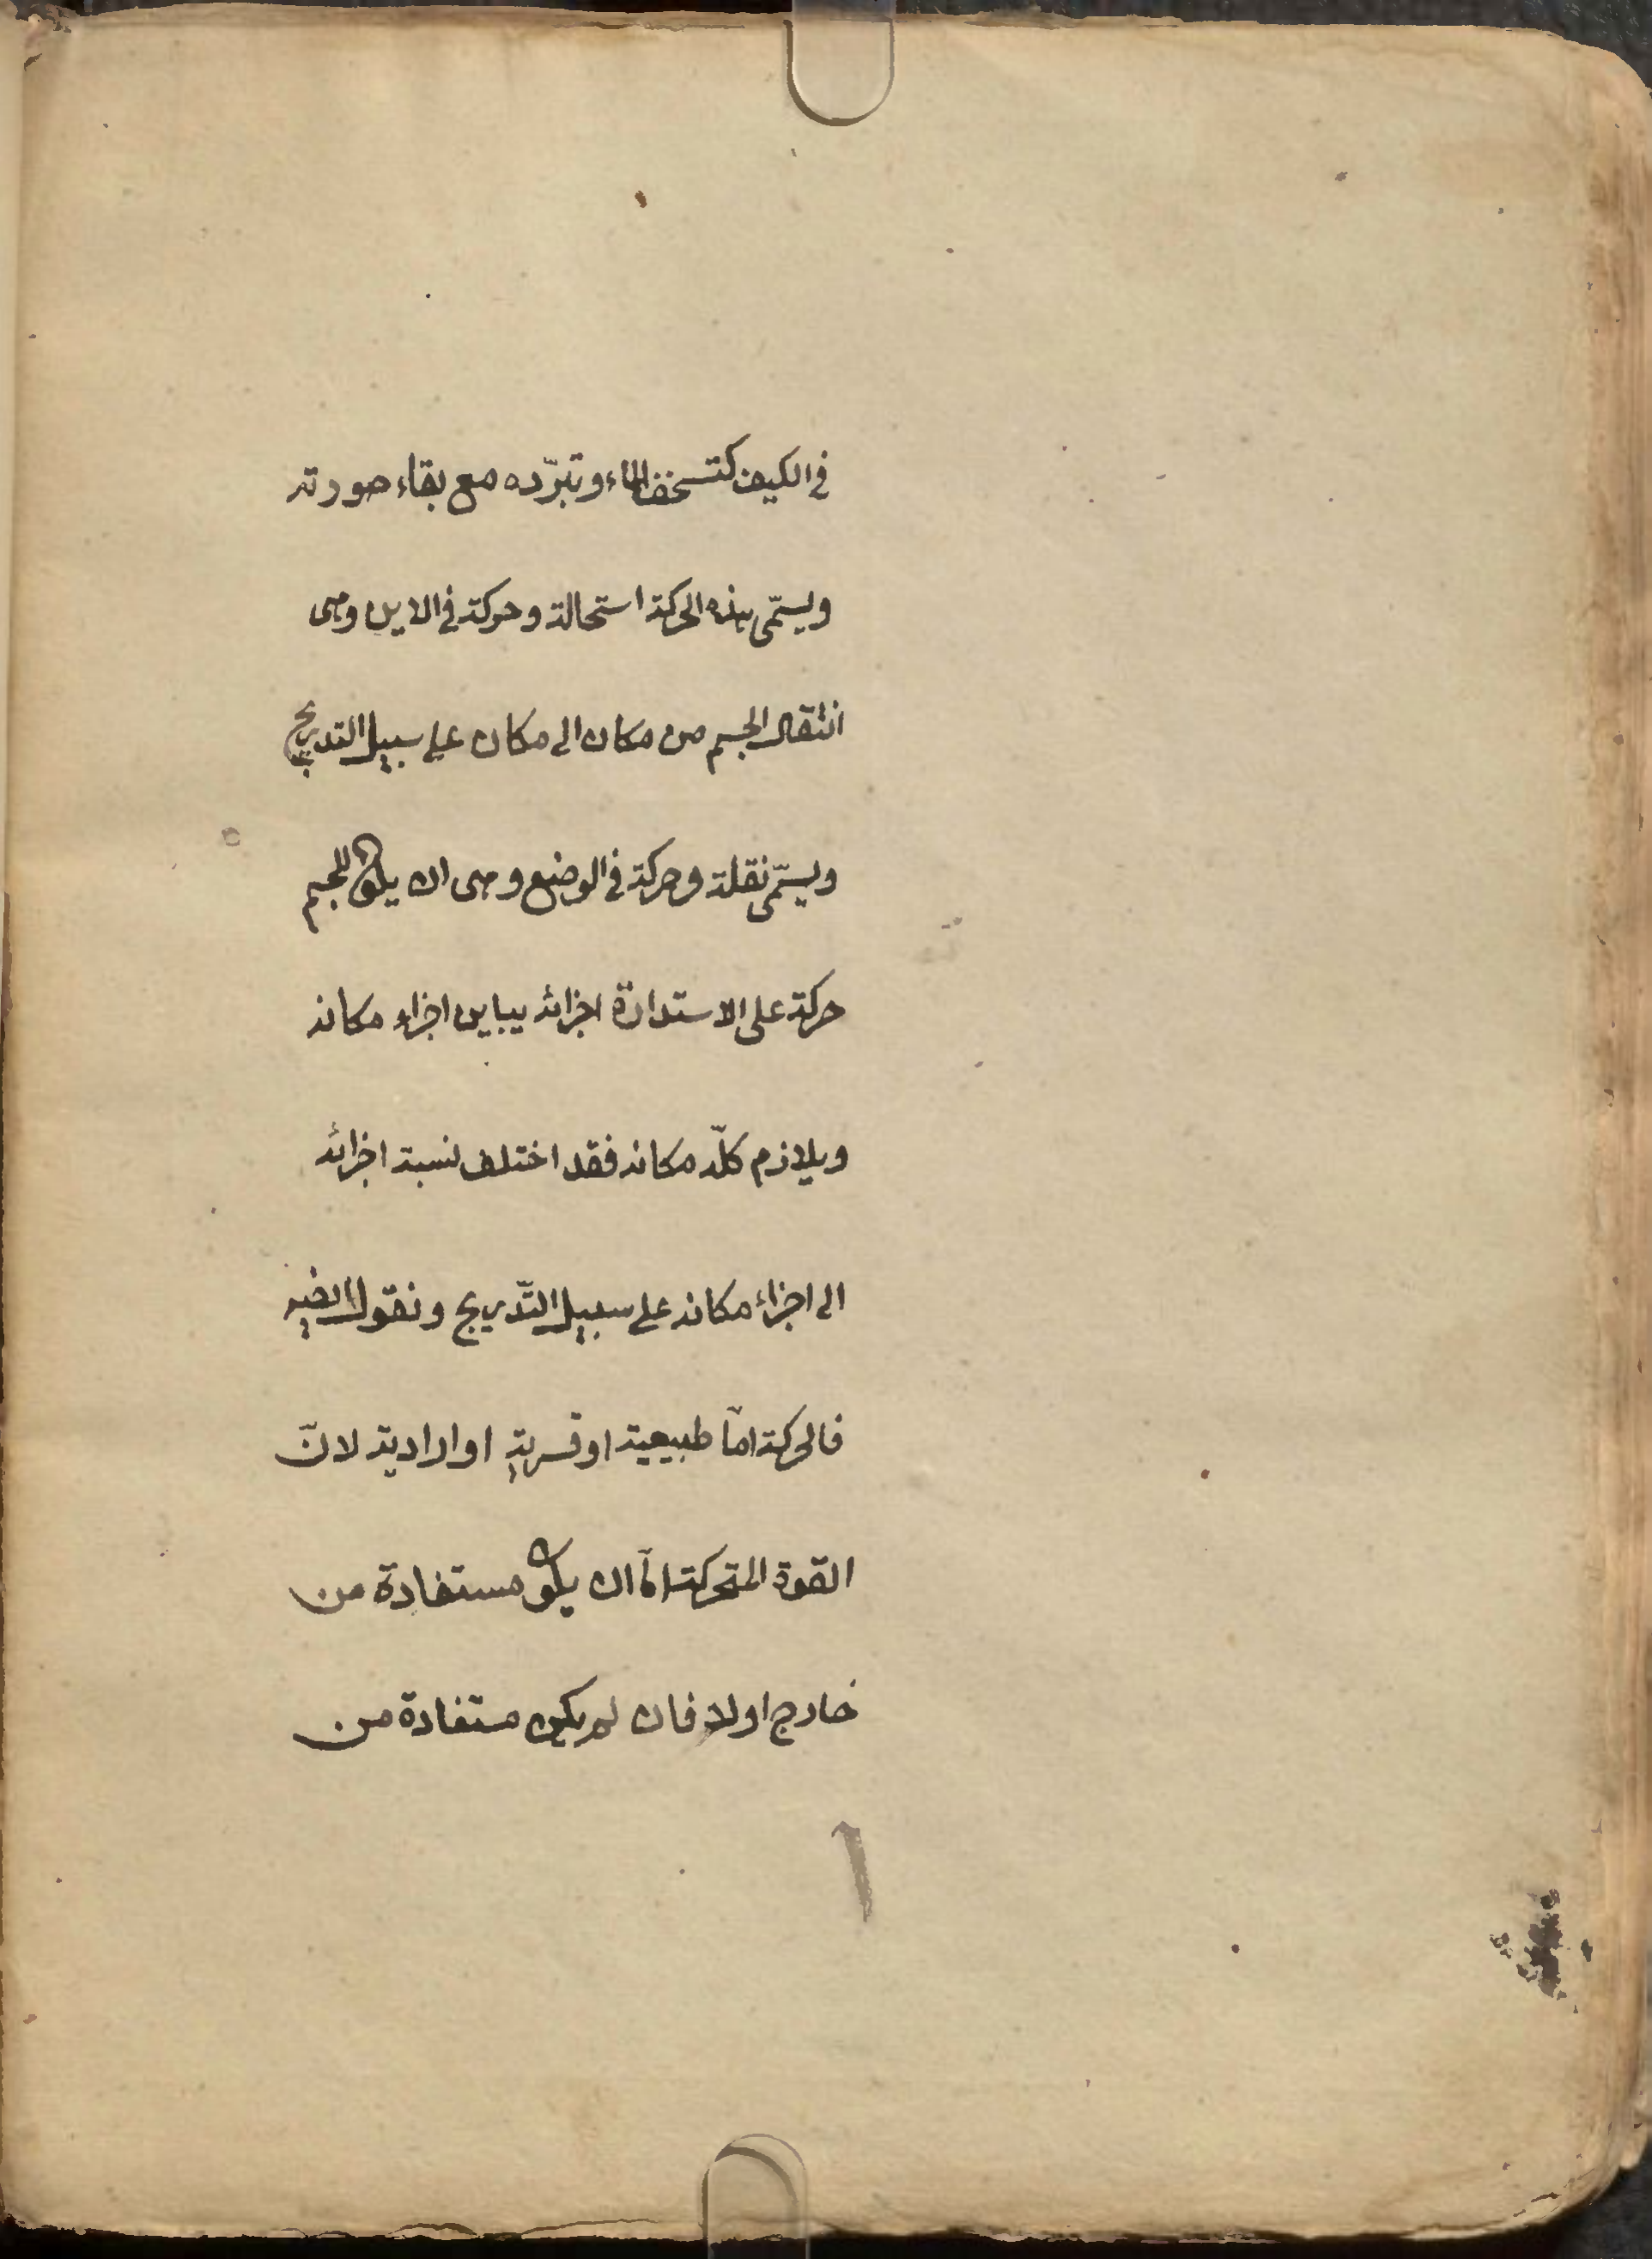 في الكيف كتسخن الماء وتبرّده مع بقاء صورته
ويسمّى هذه الحركة استحالة وحركة في الاين وهى
انتقال الجسم من مكان الى مكان على سبيل التدريج
ويسمّى نقلة وحركة في الوضع وهى ان يكون للجسم
حركة على الاستدارة اجزائه يباين اجزاء مكانه
ويلازم كلّه مكانه فقد اختلف نسبة اجزائه
الى اجزاء مكانه على سبيل التّدريج ونقول ايضا
فالحركة امّا طبيعية او قسرية او ارادية لانّ
القوة المتحركة امّا ان يكون مستفادة من
خارج اولا فان لم يكن مستفادة من